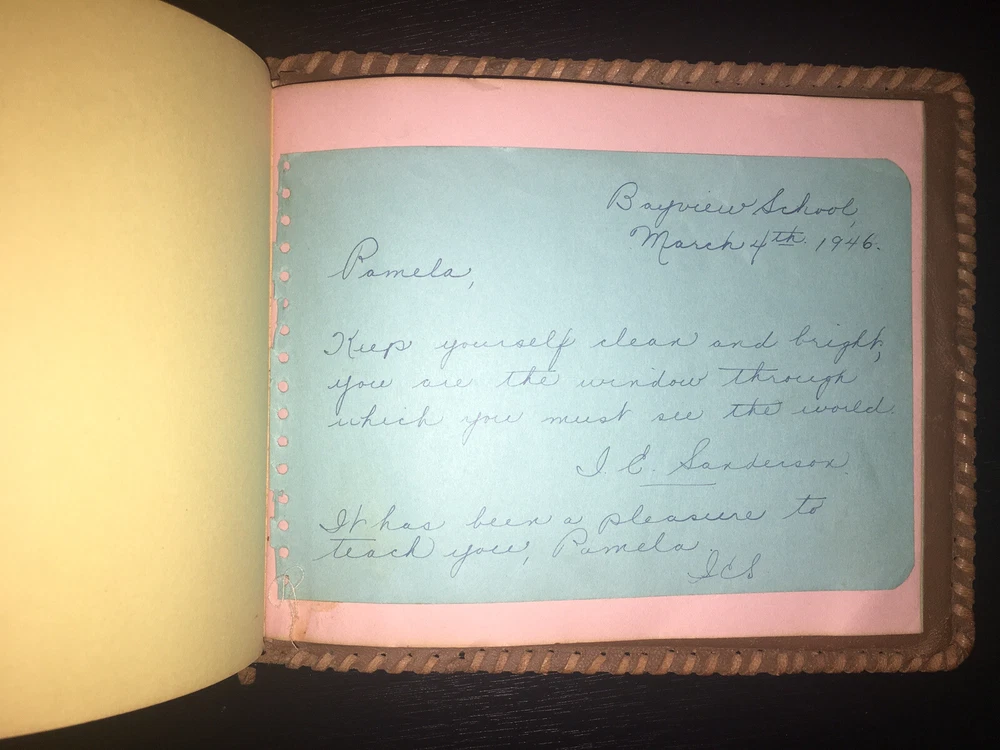 Bayview School,
March 4th. 1946.
Pamela,
Keep yourself clean and bright,
you are the window through
which you must see the world.
I. E. Sanderson.
It has been a pleasure to
teach you, Pamela.
IES